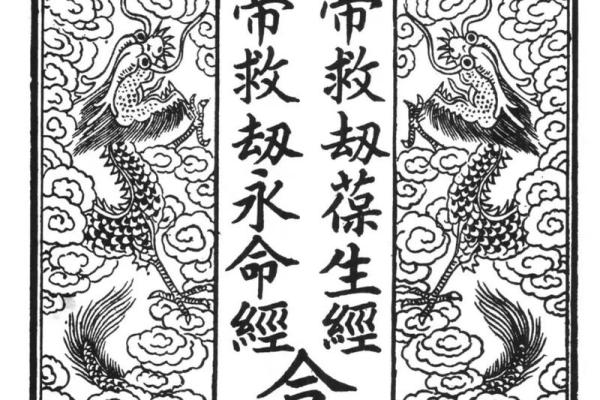 帝救刼葆生經
帝救刼永命經
合